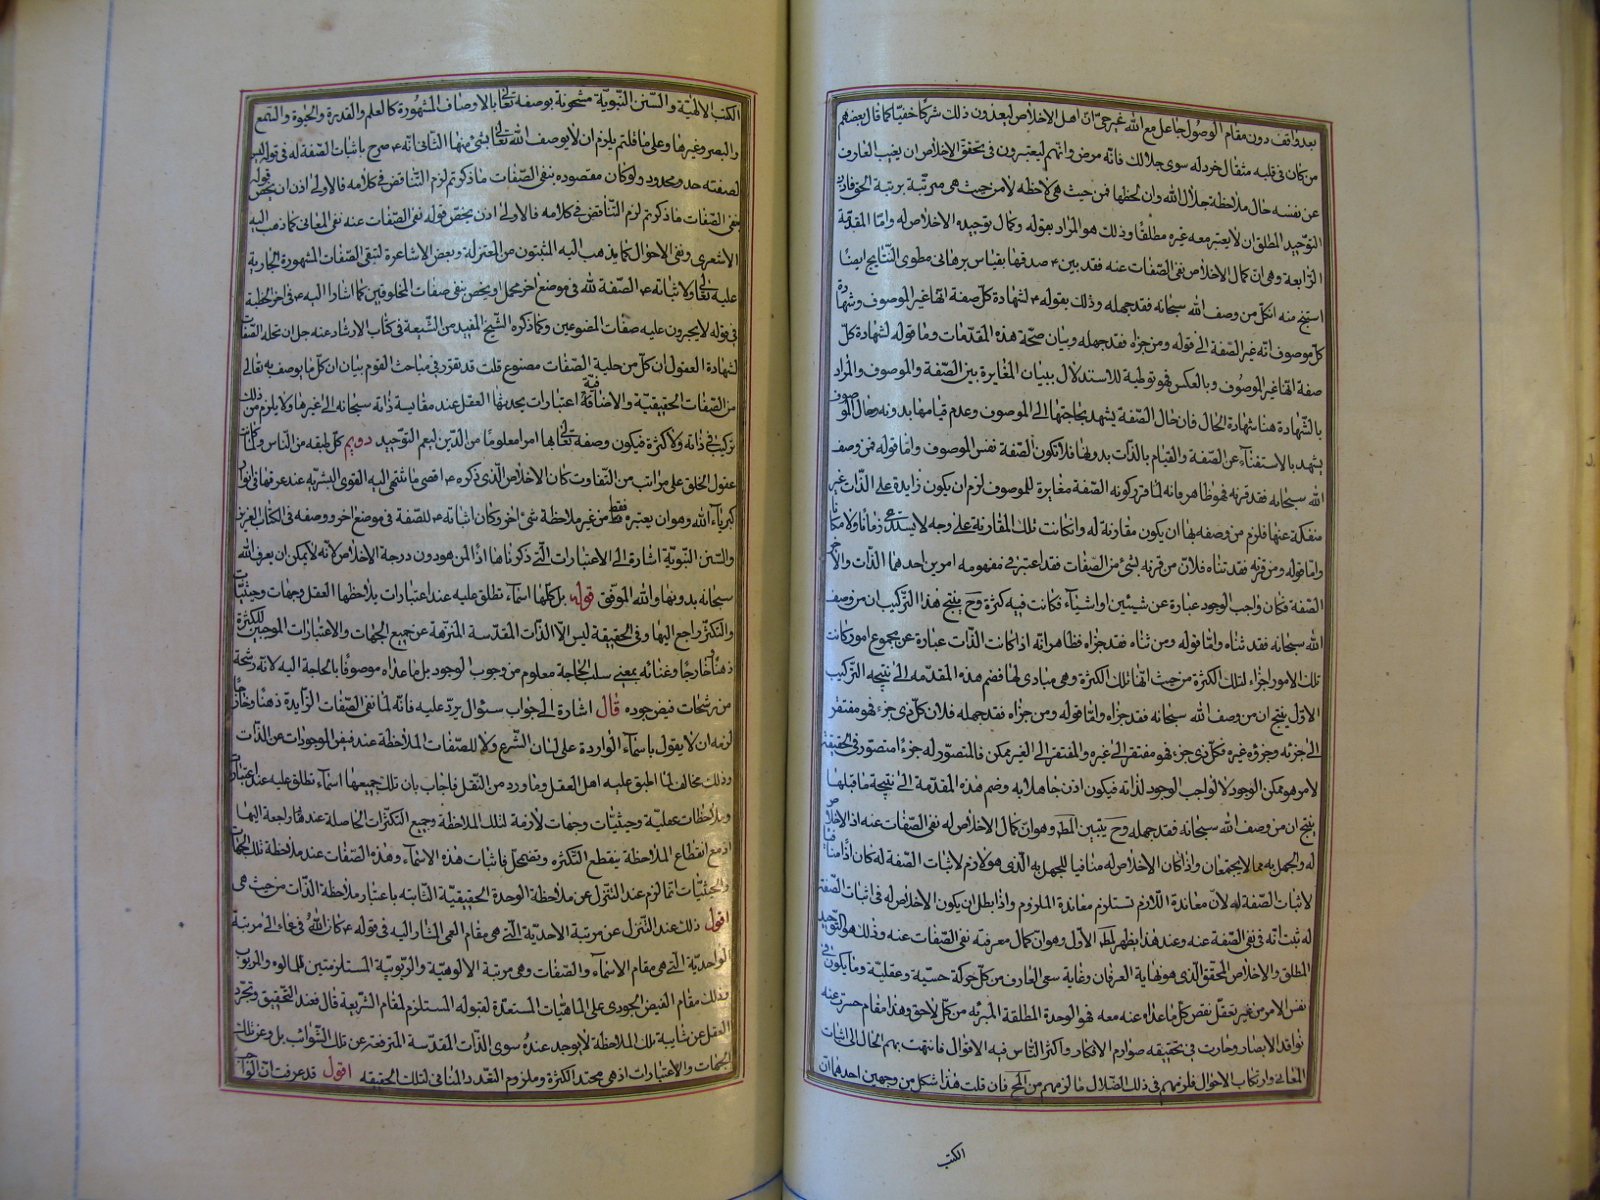 بعد واقف دون مقام الوصول جاعل مع الله غير حتى ان اهل الاخلاص ليعدون ذلك شركا خفيا كما قال بعضهم
من كان في قلبه مثقال خردله سوى جلالك فانه مرض وانهم ليعتبرون في تحقق الاخلاص ان يغيب العارف
عن نفسه حال ملاحظة جلال الله وان لحظها فمن حيث هي لاحظه لا من حيث هي مزينة بزينة الحق فاذن
التوحيد المطلق ان لا يعتبر معه غيره مطلقا وذلك هو المراد بقوله وكمال توحيده الاخلاص له واما المقدمة
الرابعة وهي ان كمال الاخلاص نفى الصفات عنه فقد بين ع صدقها بقياس برهاني مطوى النتايج ايضا
استنتج منه ان كل من وصف الله سبحانه فقد جهله وذلك بقوله ع لشهادة كل صفة انها غير الموصوف وشهادة
كل موصوف انه غير الصفة الى قوله ومن جزاه فقد جهله وبيان صحة هذه المقدمات وما قوله لشهادة كل
صفة انها غير الموصوف وبالعكس فهو توطية للاستدلال ببيان المغايرة بين الصفة والموصوف والمراد
بالشهادة هنا شهادة الحال فان حال الصفة يشهد بحاجتها الى الموصوف وعدم قيامها بدونه وحال الموصوف
يشهد بالاستغناء عن الصفة والقيام بالذات بدونها فلا تكون الصفة نفس الموصوف واما قوله فمن وصف
الله سبحانه فقد قرنه فهو ظاهر فانه لما قرر كونه الصفة مغايرة للموصوف لزم ان يكون زايدة على الذات غير
منفكة عنها فلزم من وصفه بها ان يكون مقارنة له وان كانت تلك المقارنة على وجه لا يستدعي زمانا ولا مكانا
واما قوله ومن قرنه فقد ثناه فلان من قرنه بشئ من الصفات فقد اعتبر في مفهومه امرين احدهما الذات والاخر
الصفة فكان واجب الوجود عبارة عن شيئين او اشياء فكانت فيه كثرة وح ينتج هذا التركيب ان من وصف
الله سبحانه فقد ثناه واما قوله ومن ثناه فقد جزاه فظاهر انه اذا كانت الذات عبارة عن مجموع امور كانت
تلك الامور اجزاء لتلك الكثرة من حيث انها تلك الكثرة وهي مبادى لها فضم هذه المقدمه الى نتيجه التركيب
الاول ينتج ان من وصف الله سبحانه فقد جزاه واما قوله ومن جزاه فقد جهله فلان كل ذى جزء فهو مفتقر
الى جزئه وجزؤه غيره فكل ذى جزء فهو مفتقر الى غيره والمفتقر الى الغير ممكن فالمتصور له جزء المتصور في الحقيقة
لامر هو ممكن الوجود لا الواجب الوجود لذاته فيكون اذن جاهلا به وضم هذه المقدمة الى نتيجة ما قبلها
ينتج ان من وصف الله سبحانه فقد جهله وح يتبين المط وهو ان كمال الاخلاص له نفى الصفات عنه اذ الاخلاص
له والجهل به مما لا يجتمعان واذا كان الاخلاص له منافيا للجهل به الذى هو لازم لاثبات الصفة له كان اذا منافيا
لاثبات الصفة له لان معاندة اللازم تستلزم معاندة الملزوم واذا بطل ان يكون الاخلاص له في اثبات الصفة
له ثبت انه في نفى الصفة عنه وعند هذا يظهر المط الاول وهو ان كمال معرفته نفى الصفات عنه وذلك هو التوحيد
المطلق والاخلاص المحقق الذى هو نهاية العرفان وغاية سعى العارف من كل حركة حسية وعقلية وما يكون في
نفس الامر من غير تعقل نقص كل ما عداه عنه معه فهو الوحدة المطلقة المبرئه من كل لاحق وهذا مقام حسرت عنه
نوافذ الابصار وحارت في تحقيقه صوارم الافكار واكثر الناس فيه الاقوال فانتهت بهم الحال الى اثبات
المعاني وارتكاب الاحوال فلزمهم في ذلك الضلال ما لزمهم من المح فان قلت هذا يشكل من وجهين احدهما ان
الكتب
الكتب الالهية والسنن النبوية مشحونة بوصفه تعالى بالاوصاف المشهورة كالعلم والقدرة والحيوة والسمع
والبصر وغيرها وعلى ما قلتم يلزم ان لا يوصف الله تعالى بشئ منها الثاني انه ع صرح باثبات الصفة له في قوله ليس
لصفته حد محدود ولو كان مقصوده بنفى الصفات ما ذكرتم لزم التناقض في كلامه فالاولى اذن ان يخص قوله
بنفى الصفات ما ذكرتم لزم التناقض في كلامه فالاولى اذن يخص قوله نفى الصفات عنه نفى المعاني كما ذهب اليه
الاشعرى ونفى الاحوال كما يذهب اليه المثبتون من المعتزلة وبعض الاشاعرة لتبقى الصفات المشهورة الجارية
عليه تعالى ولاثباته ع الصفة لله في موضع اخر محمل او يخص بنفى صفات المخلوقين كما اشار اليه ع في اخر الخطبة
في قوله لا يجرون عليه صفات المصنوعين وكما ذكره الشيخ المفيد من الشيعة في كتاب الارشاد عنه جل ان تحله الصفات
لشهادة العقول ان كل من حلته الصفات مصنوع قلت قد تقرر في مباحث القوم بيان ان كل ما يوصف به تعالى
من الصفات الحقيقية والاضافية اعتبارات يحدثها العقل عند مقايسة ذاته سبحانه الى غيرها ولا يلزم من ذلك
تركيب في ذاته ولا كثرة فيكون وصفه تعالى بها امرا معلوما من الدين ليعم التوحيد دويم كل طبقه من الناس ولما كانت
عقول الخلق على مراتب من التفاوت كان الاخلاص الذى ذكره ع اقصى ما تنتهى اليه القوى البشريه عند غرقها في انوار
كبرياء الله وهو ان يعتبره فقط من غير ملاحظة شئ اخر وكان اثباته ع للصفة في موضع اخر ووصفه في الكتاب العزيز
والسنن النبوية اشارة الى الاعتبارات التى ذكرناها اذ كان من هو دون درجة الاخلاص لانه لا يمكن ان يعرف الله
سبحانه بدونها والله الموفق قوله بل كلها اسماء تطلق عليه عند اعتبارات يلاحظها العقل وجهات وحيثيات
والتكثر راجع اليها وفي الحقيقة ليس الا الذات المقدسة المنزهة عن جميع الجهات والاعتبارات الموجبين للكثرة
ذهنا وخارجا وغنائه بمعنى سلب الحاجة معلوم من وجوب الوجود بل ما عداه موصوفا بالحاجة اليه لانه رشحة
من رشحات فيض جوده قال اشارة الى جواب سئوال يرد عليه فانه لما نفى الصفات الزايدة ذهنا وخارجا
لزمه ان لا يقول باسماء الواردة على لسان الشرع ولا للصفات الملاحظة عند فيض الموجودات عن الذات
وذلك مخالف لما اطبق عليه اهل العقل وما ورد من النقل فاجاب بان تلك جميعها اسماء تطلق عليه عند اعتبارات
وملاحظات عقلية وحيثيات وجهات لازمة لتلك الملاحظة وجميع التكثرات الحاصلة عندها راجعة اليها
اذ مع انقطاع الملاحظة ينقطع التكثره وتضمحل فاثبات هذه الاسماء وهذه الصفات عند ملاحظة تلك الجهات
والحيثيات انما لزم عند التنزل عن ملاحظة الوحدة الحقيقية الثابته باعتبار ملاحظة الذات من حيث هى
اقول ذلك عند التنزل عن مرتبة الاحدية التى هى مقام العمى المشار اليه في قوله ع كان الله في عماء الى مرتبة
الواحدية التى هى مقام الاسماء والصفات وهى مرتبة الالوهية والربوبية المستلزمتين للمالوه والمربوب
وذلك مقام الفيض الجودى على الماهيات المستعدة لقبوله المستلزم لمقام الشريعة قال فعند التحقيق وتجرد
العقل عن شايبة تلك الملاحظة لا يوجد عنده سوى الذات المقدسة المترفعة عن تلك الشوائب بل وعن تلك
الجهات والاعتبارات اذ هى محتد الكثرة وملزوم التعدد المنافى لتلك الحقيقه اقول قد عرفت ان الواجب